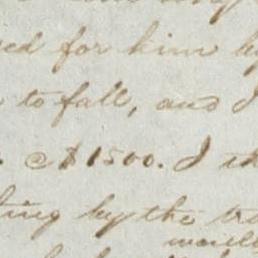 ed for him by
to fall, and I
@ $1500. I th
ting by the tre
would